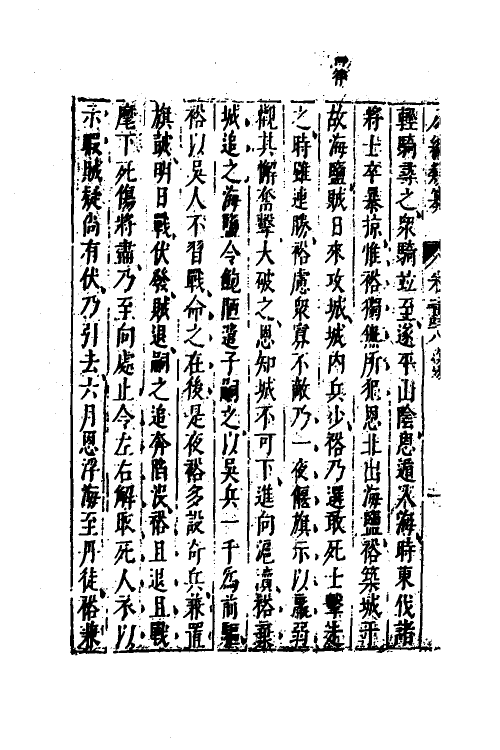 輕騎尋之衆騎並至遂平山陰恩遁入海時東伐諸
將士卒暴掠惟裕獨無所犯恩北出海鹽裕築城于
故海鹽賊日來攻城城内兵少裕乃選敢死士擊走
之時雖連勝裕慮衆寡不敵乃一夜偃旗示以羸弱
觀其懈奮擊大破之恩知城不可下進向滬瀆裕棄
城追之海鹽令鮑陋遣子嗣之以吳兵一千爲前驅
裕以吳人不習戰命之在後是夜裕多設奇兵兼置
旗鼓明日戰伏發賊退嗣之追奔陷沒裕且退且戰
麾下死傷將盡乃至向處止令左右解取死人衣以
示暇賊疑尚有伏乃引去六月恩浮海至丹徒裕兼